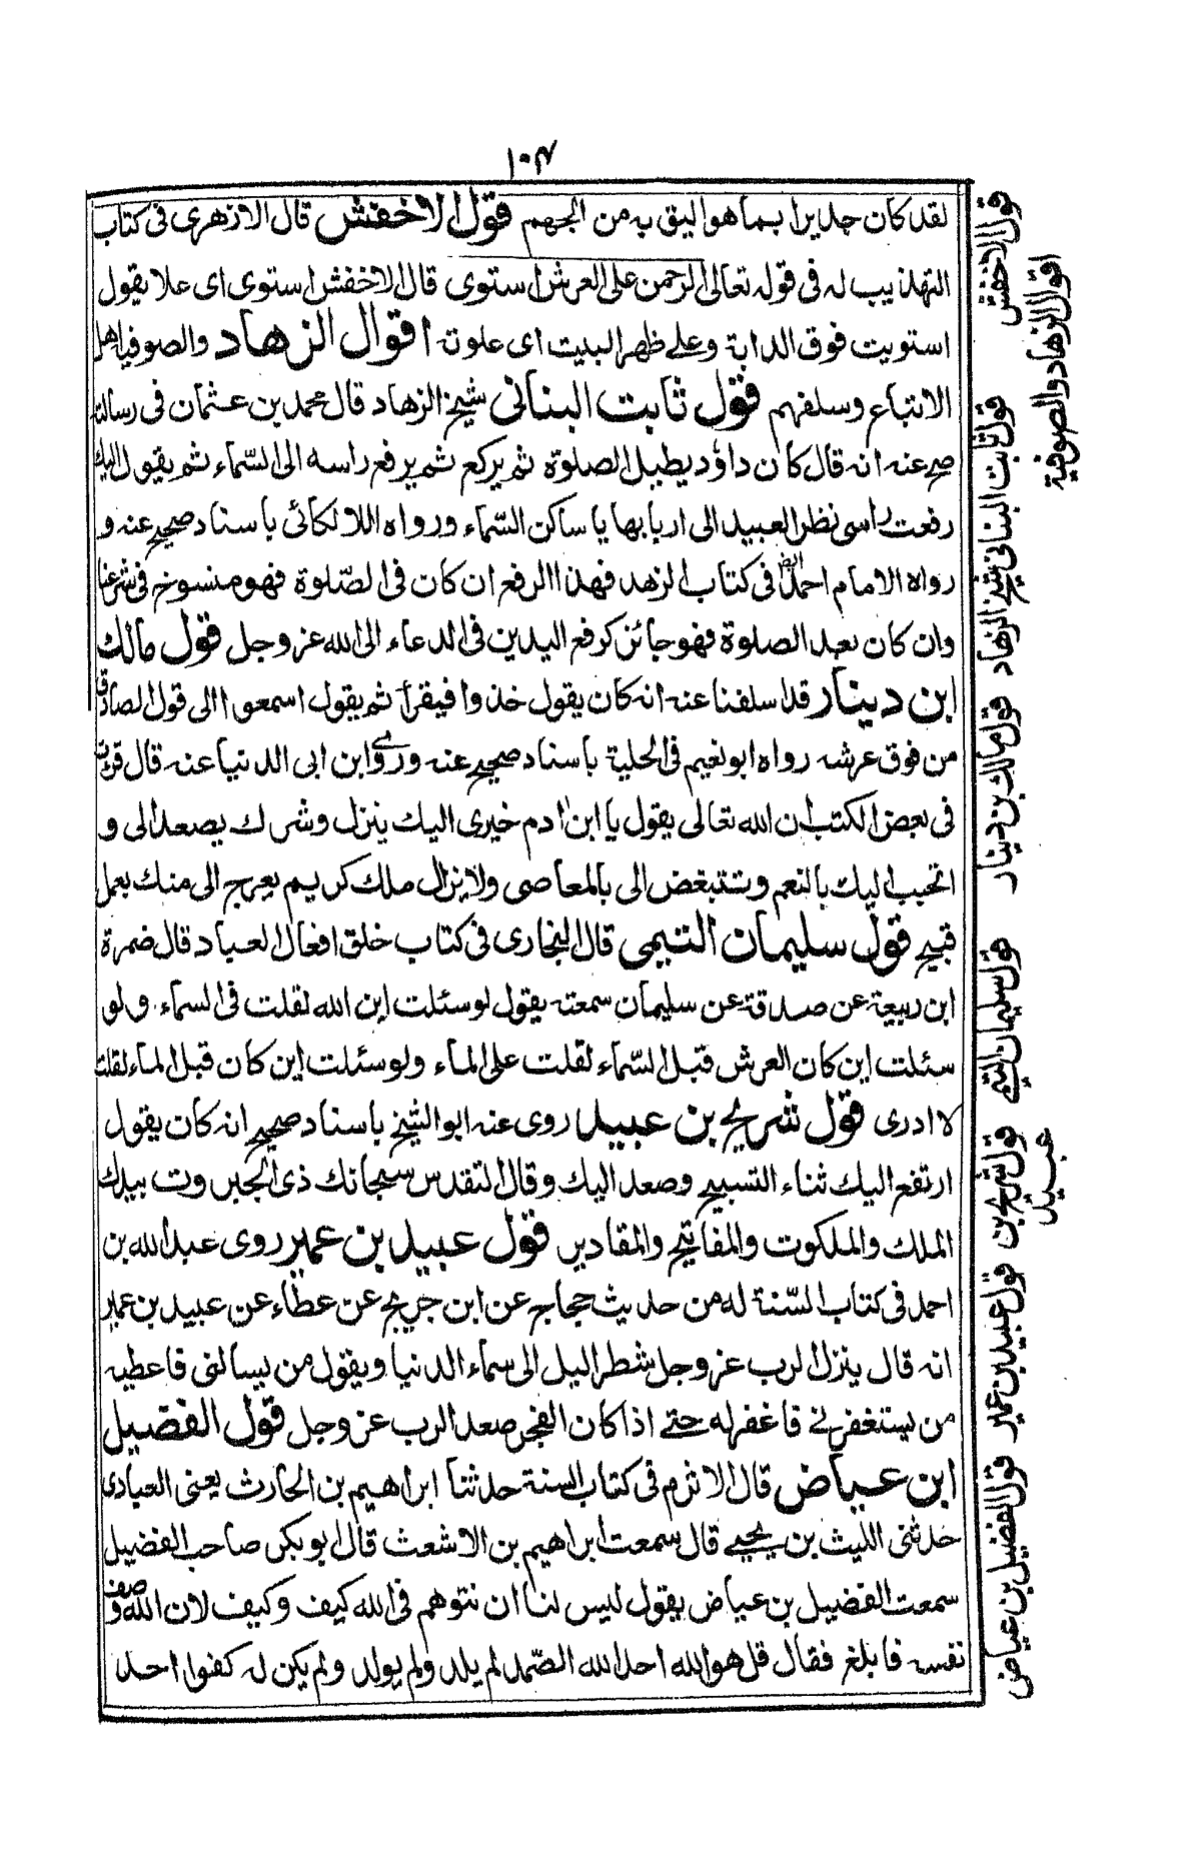 ١٠٤
لقد كان جديرا بما هو اليق به من الجهم قول الاخفش قال الازهرى فى كتاب
التهذيب له فى قوله تعالى الرحمن على العرش استوى قال الاخفش استوى اى علا يقول
استويت فوق الدابة وعلے ظهر البيت اى علوته اقوال الزهاد والصوفية اهل
الاتباع وسلفهم قول ثابت البنانى شيخ الزهاد قال محمد بن عثمان فى رسالته
صح عنه انه قال كان داؤد يطيل الصلوة ثم يركع ثم يرفع راسه الى السّماء ثم يقول اليك
رفعت راسى نظر العبيد الى اربابها يا ساكن السّماء ورواه اللالكائى باسناد صحيح عنه و
رواه الامام احمد ايضا فى كتاب الزهد فهذا الرفع ان كان فى الصّلوة فهو منسوخ فى شرعنا
وان كان بعد الصلوة فهو جائز كرفع اليدين فى الدعاء الى الله عز وجل قول مالك
ابن دينار قد اسلفنا عنه انه كان يقول خذوا فيقرأ ثم يقول اسمعوا الى قول الصادق
من فوق عرشه رواه ابو نعيم فى الحلية باسناد صحيح عنه وروى ابن ابى الدنيا عنه قال قرأت
فى بعض الكتب ان الله تعالى يقول يا ابن ادم خيرى اليك ينزل وشرك يصعد الى و
اتحبب اليك بالنعم وتتبغض الى بالمعاصى ولا يزال ملك كريم يعرج الى منك بعمل
قبيح قول سليمان التيمى قال البخارى فى كتاب خلق افعال العباد قال ضمرة
ابن ربيعة عن صدقة عن سليمان سمعته يقول لو سئلت اين الله لقلت فى السماء ولو
سئلت اين كان العرش قبل السّماء لقلت على الماء ولو سئلت اين كان قبل الماء لقلت
لا ادرى قول شريح بن عبيد روى عنه ابو الشيخ باسناد صحيح انه كان يقول
ارتفع اليك ثناء التسبيح وصعد اليك وقال التقدس سبحانك ذى الجبروت بيدك
الملك والملكوت والمفاتيح والمقادير قول عبيد بن عمير روى عبد الله بن
احمد فى كتاب السّنة له من حديث حجاج عن ابن جريج عن عطاء عن عبيد بن عمير
انه قال ينزل الرب عز وجل شطر اليل الى سماء الدنيا ويقول من يسالنى فاعطيه
من يستغفرنے فاغفر له حتے اذا كان الفجر صعد الرب عز وجل قول الفضيل
ابن عياض قال الاثرم فى كتاب السنة حدثنا ابراهيم بن الحارث يعنى العبادى
حدثنى الليث بن يحيے قال سمعت ابراهيم بن الاشعث قال ابو بكر صاحب الفضيل
سمعت الفضيل بن عياض يقول ليس لنا ان نتوهم فى الله كيف وكيف لان الله وصف
نفسه فابلغ فقال قل هو الله احد الله الصّمد لم يلد ولم يولد ولم يكن له كفوا احد
قول الاخفش
اقوال الزهاد والصوفية
قول ثابت البنانى شيخ الزهاد
قول مالك بن دينار
قول سليمان التيمے
قول شريح بن
عبيد
قول عبيد بن عمير
قول الفضيل بن عياض